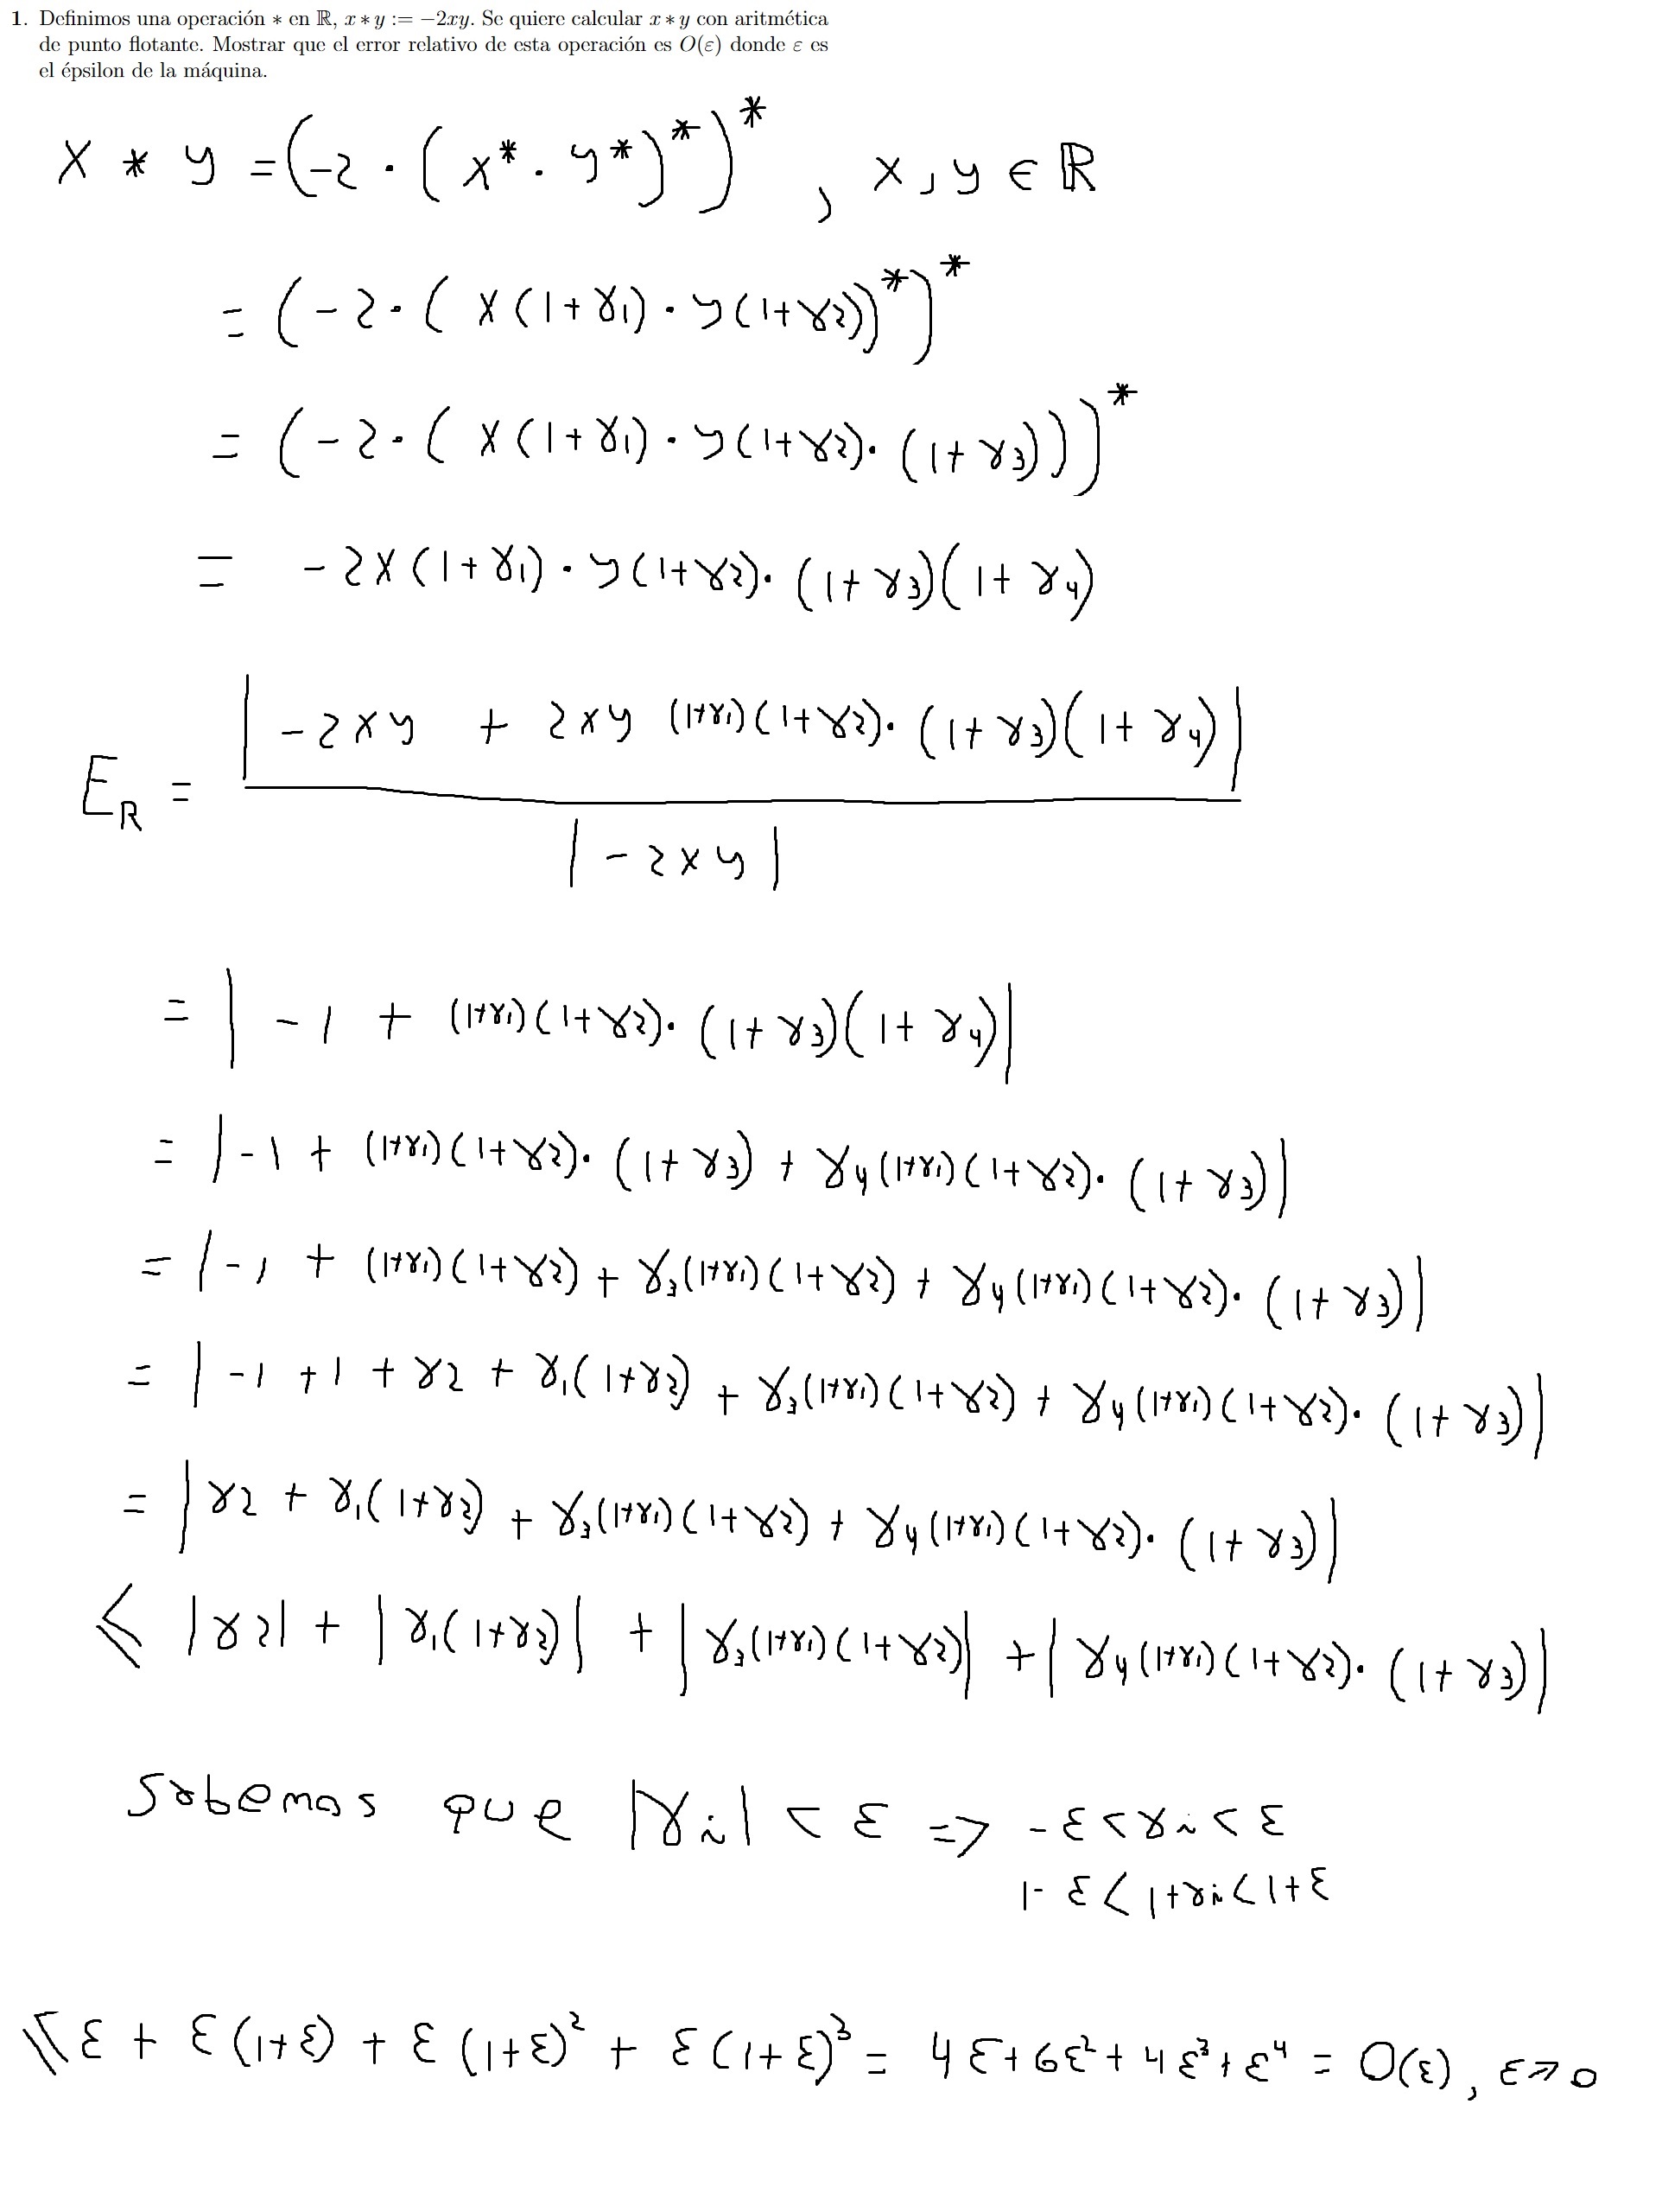 1. Definimos una operación ∗ en ℝ, x ∗ y := −2xy. Se quiere calcular x ∗ y con aritmética
de punto flotante. Mostrar que el error relativo de esta operación es O(ε) donde ε es
el épsilon de la máquina.
x * y = (-2 · (x* · y*)*)* , x, y ∈ ℝ
= (-2 · (x(1+γ1) · y(1+γ2))*)*
= (-2 · (x(1+γ1) · y(1+γ2) · (1+γ3)))*
= -2x(1+γ1) · y(1+γ2) · (1+γ3)(1+γ4)
E_R = |-2xy + 2xy (1+γ1)(1+γ2) · (1+γ3)(1+γ4)|
|-2xy|
= |-1 + (1+γ1)(1+γ2) · (1+γ3)(1+γ4)|
= |-1 + (1+γ1)(1+γ2) · (1+γ3) + γ4(1+γ1)(1+γ2) · (1+γ3)|
= |-1 + (1+γ1)(1+γ2) + γ3(1+γ1)(1+γ2) + γ4(1+γ1)(1+γ2) · (1+γ3)|
= |-1 + 1 + γ2 + γ1(1+γ2) + γ3(1+γ1)(1+γ2) + γ4(1+γ1)(1+γ2) · (1+γ3)|
= |γ2 + γ1(1+γ2) + γ3(1+γ1)(1+γ2) + γ4(1+γ1)(1+γ2) · (1+γ3)|
≤ |γ2| + |γ1(1+γ2)| + |γ3(1+γ1)(1+γ2)| + |γ4(1+γ1)(1+γ2) · (1+γ3)|
Sabemos que |γi| < ε => -ε < γi < ε
1-ε < 1+γi < 1+ε
≤ ε + ε(1+ε) + ε(1+ε)² + ε(1+ε)³ = 4ε + 6ε² + 4ε³ + ε⁴ = O(ε), ε→0